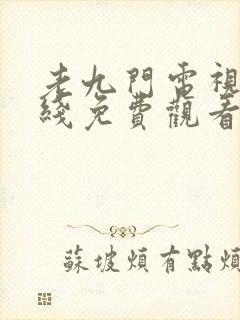 老九門電視
綫免費觀看
蘇坡煩有點煩